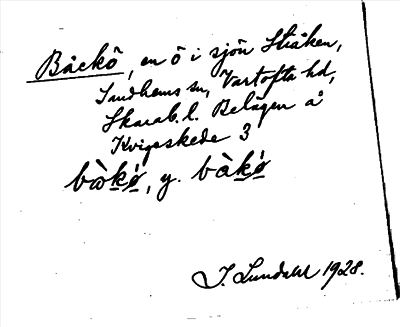 Båckö, en ö i sjön Stråken,
Sandhems sn, Vartofta hd,
Skarab. l. Belägen å
Kvigeskede 3
bàkó, y. bàkó
I. Lundahl 1928.